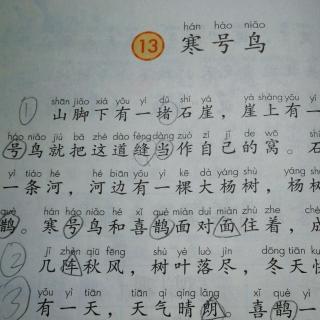 hán hào niǎo
13 寒号鸟
shān jiǎo xià yǒu yí dǔ shí yá yá shàng yǒu yí
① 山脚下有一堵石崖，崖上有一
háo niǎo jiù bǎ zhè dào fèng dàng zuò zì jǐ de wō shí
号鸟就把这道缝当作自己的窝。石
yì tiáo hé hé biān yǒu yì kē dà yáng shù yáng shù
一条河，河边有一棵大杨树，杨树
què hán háo niǎo hé xǐ què miàn duì miàn zhù zhe chéng
鹊。寒号鸟和喜鹊面对面住着，成
jǐ zhèn qiū fēng shù yè luò jìn dōng tiān kuài
② 几阵秋风，树叶落尽，冬天快
yǒu yì tiān tiān qì qíng lǎng xǐ què yì
③ 有一天，天气晴朗。喜鹊一